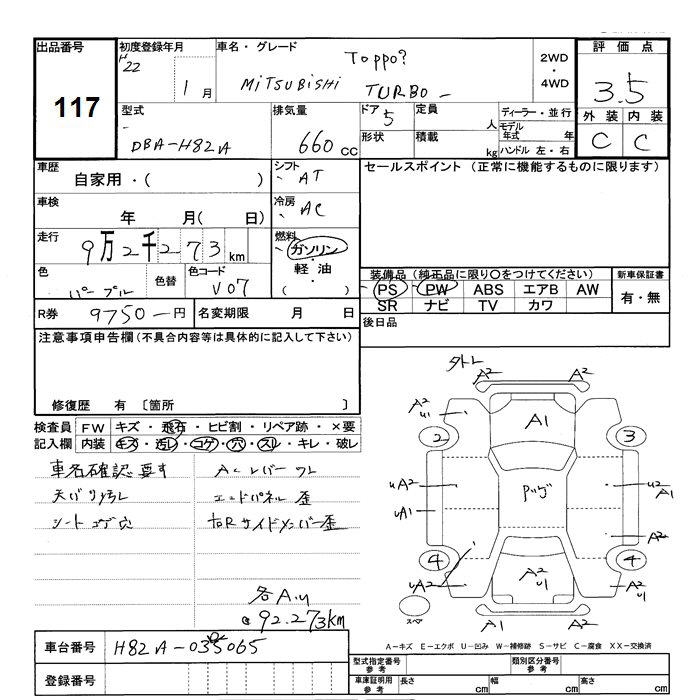 出品番号 117
初度登録年月 H22 1月
車名・グレード Toppo?
MiTSUBiSHi TURBO -
2WD ・ 4WD
評価点 3.5
型式 DBA-H82A
排気量 660 cc
ドア 5
定員 人
形状
積載 kg
ディーラー・並行
モデル年式 年
ハンドル 左・右
外装 内装
C C
車歴 自家用・( )
シフト AT
セールスポイント (正常に機能するものに限ります)
車検 年 月( 日)
冷房 AC
走行 9万2千273 km
燃料 ガソリン・軽油・( )
色 パープル
色替
色コード V07
装備品 (純正品に限り○をつけてください)
PS PW ABS エアB AW
SR ナビ TV カワ
新車保証書 有・無
R券 9750-円
名変期限 月 日
後日品
注意事項申告欄 (不具合内容等は具体的に記入して下さい)
修復歴 有 〔箇所 〕
検査員記入欄
FW キズ・飛石・ヒビ割・リペア跡・×要
内装 キズ・ヨゴレ・コゲ・穴・スレ・キレ・破レ
車名確認要す
ACレバーワレ
天バリ汚レ
エンドパネル歪
シートコゲ穴
右Rサイドメンバー歪
各A.u
@92.273km
外トレ
A2 A2
A2 u1
A1
2 3
uA2
Pッグ
u2 A1
uA1
A2
4 4
uA2
A2 u1
A2 u1
スペ
A1 A2
A-キズ E-エクボ U-凹み W-補修跡 S-サビ C-腐食 XX-交換済
車台番号 H82A-035065
登録番号
型式指定番号 参考
類別区分番号 参考
車庫証明用 参考
長さ cm 幅 cm 高さ cm